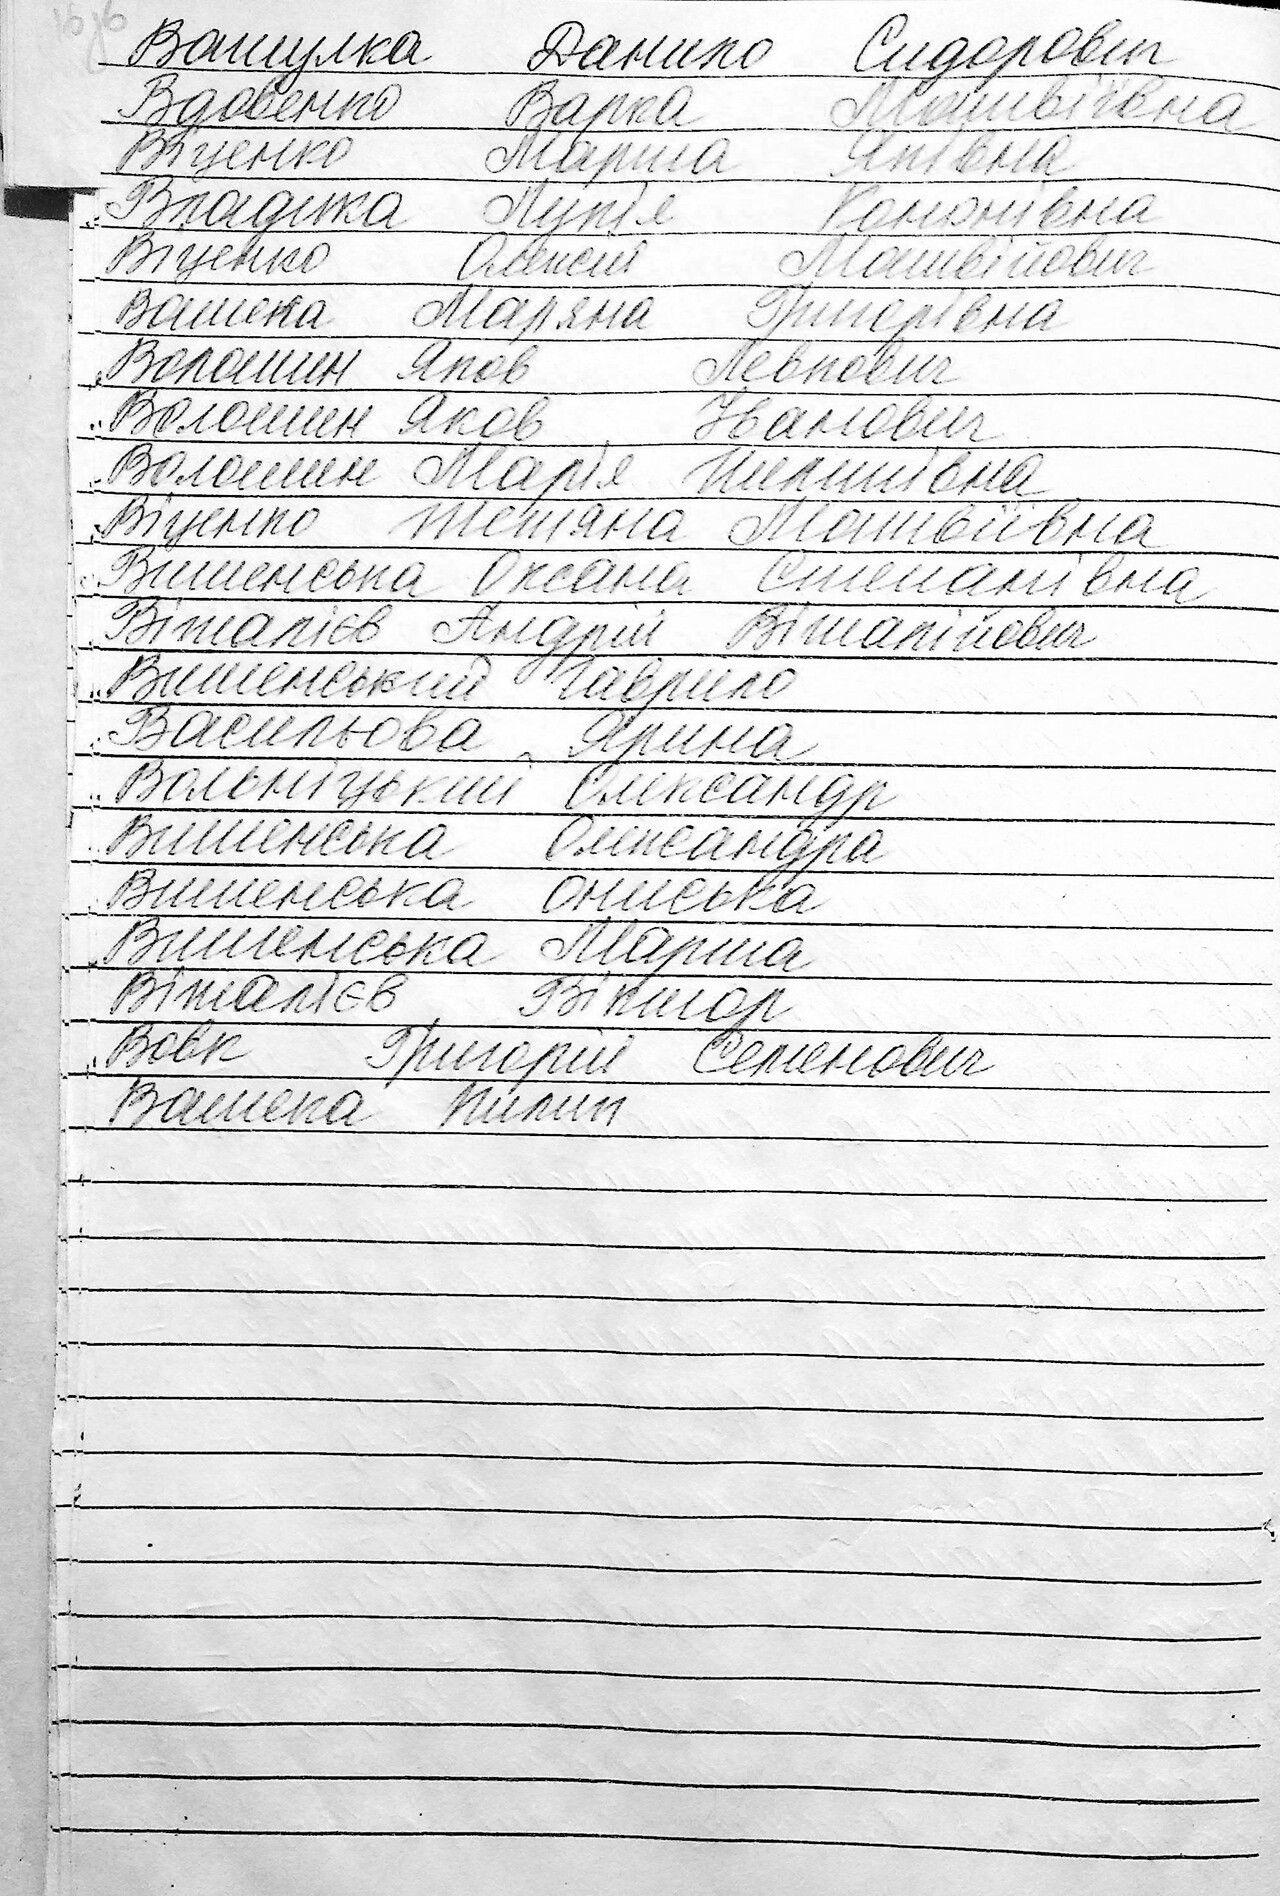 Вашулка Данило Сидорович
Вдовенко Варка Матвіївна
Віценко Марина Яківна
Владика Лукія Кононівна
Віценко Олексій Матвійович
Вашека Маряна Григорівна
Волошин Яков Левкович
Волошин Яков Іванович
Волошин Марія Пилипівна
Віценко Тетяна Матвіївна
Вишенська Оксана Степанівна
Віталієв Андрій Віталійович
Вишенський Гаврило
Васильова Ярина
Вольніцький Олександр
Вишенська Олександра
Вишенська Ониська
Вишенська Марина
Віталієв Віктор
Вовк Григорій Семенович
Вашека Пилип